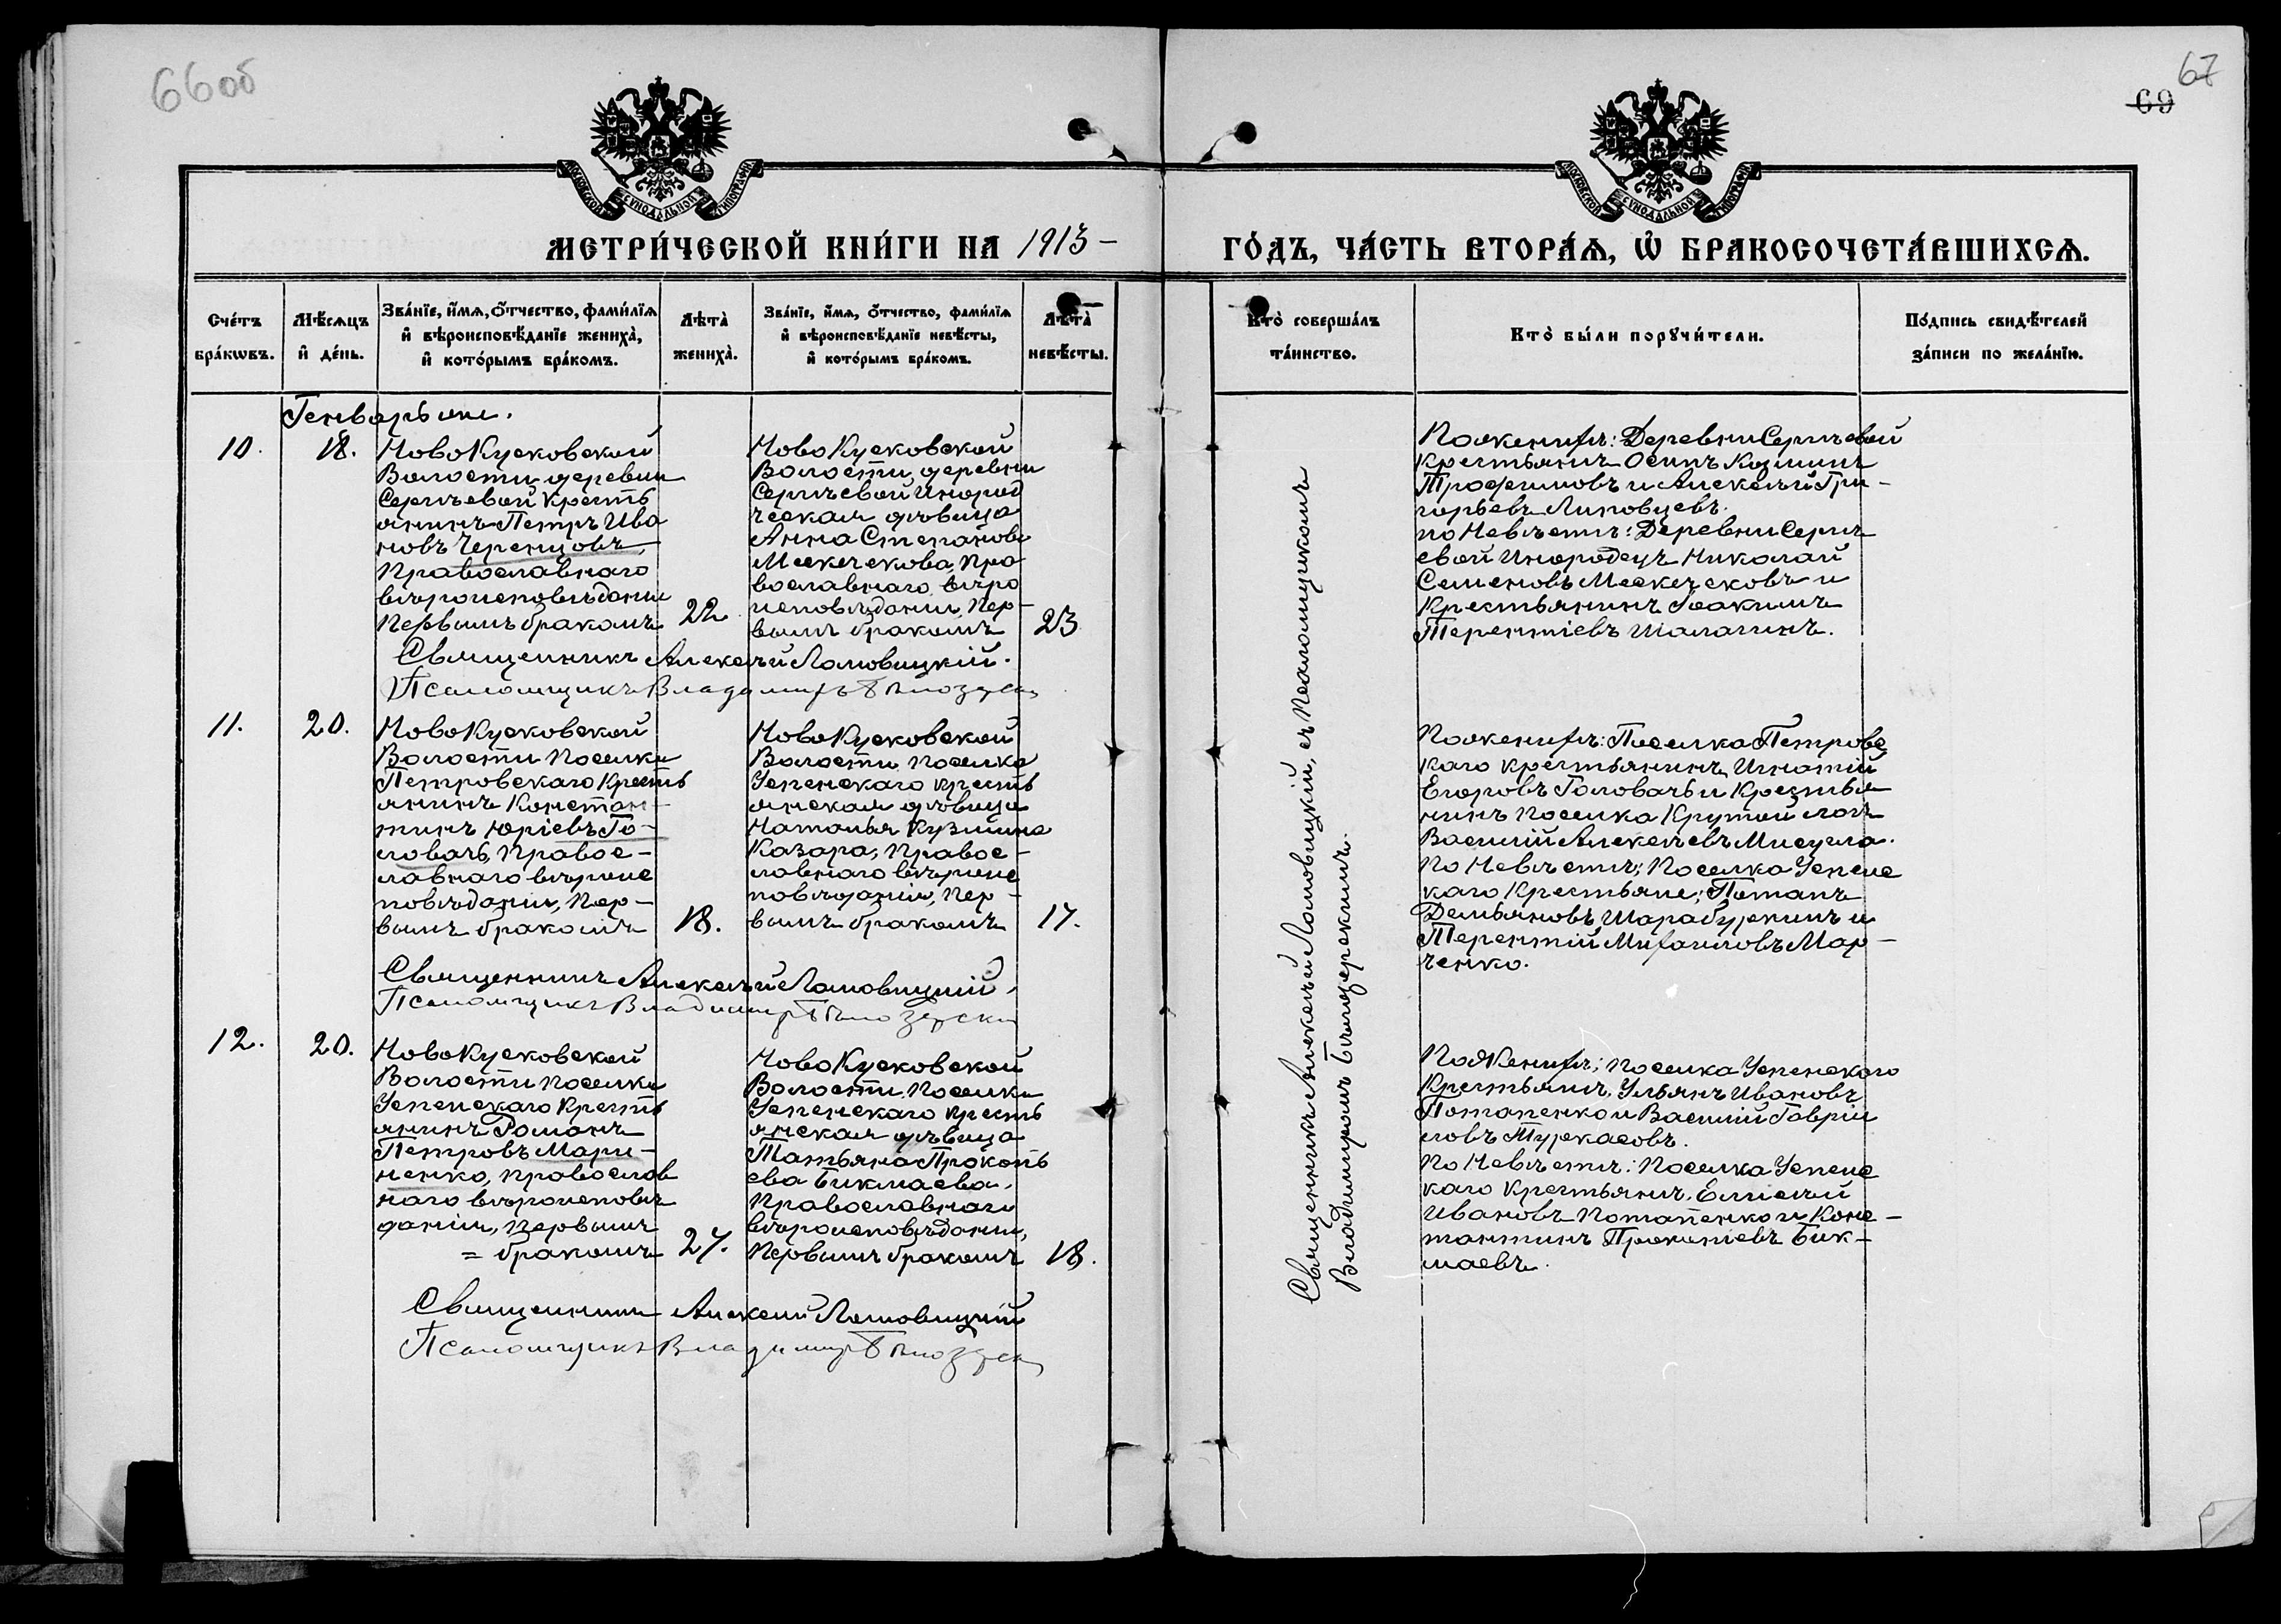 66об
67
69
МОСКОВСКОЙ СѴНОДАЛЬНОЙ ТИПОГРАФІИ
МОСКОВСКОЙ СѴНОДАЛЬНОЙ ТИПОГРАФІИ
МЕТРИ́ЧЕСКОЙ КНИ́ГИ НА 1913 –
ГО́ДЪ, ЧА́СТЬ ВТОРА́Ѧ, Ѡ҆ БРАКОСОЧЕТА́ВШИХСѦ.
Сче́тъ
бра́кѡвъ.
Мѣ́сѧцъ
и҆ де́нь.
Зва́нїе, и҆́мѧ, ѻ҆́тчество, фами́лїѧ
и҆ вѣроисповѣ́данїе жениха̀,
и҆ кото́рымъ бра́комъ.
Лѣта̀
жениха̀.
Зва́нїе, и҆́мѧ, ѻ҆́тчество, фами́лїѧ
и҆ вѣроисповѣ́данїе невѣ́сты,
и҆ кото́рымъ бра́комъ.
Лѣта̀
невѣ́сты.
Кто̀ соверша́лъ
та́инство.
Кто̀ бы́ли порꙋчи́тели.
По́дпись свидѣ́телей
за́писи по жела́нїю.
Генварь
10.
18.
НовоКусковской
Волости деревни
Сергѣевой кресть
янинъ Петръ Ива
новъ Черенцовъ,
Православнаго
вѣроисповѣданiя
Первымъ бракомъ
22
НовоКусковской
Волости, деревни
Сергѣевой Инород
ческая дѣвица
Анна Степанова
Мескечекова, Пра
вославнаго вѣро
исповѣданiя, Пер-
вымъ бракомъ
23
Священникъ Алексѣй Ломовицкій.
Псаломщикъ Владимиръ Бѣлозерскій
По женихѣ: Деревни Сергѣевой
крестьянинъ Осипъ Козминъ
Трофимовъ и Алексѣй Гри-
горьевъ Липовцевъ.
по Невѣстѣ: Деревни Сергѣ
евой Инородецъ Николай
Семеновъ Мескечековъ и
Крестьянинъ Іоакимъ
Терентіевъ Шалагинъ.
11.
20.
НовоКусковской
Волости Поселка
Петровскаго Кресть
янинъ Констан-
тинъ Юріевъ Го-
ловачъ, Правос-
лавнаго вѣроис
повѣданiя, Пер-
вымъ бракомъ
18.
НовоКусковской
Волости поселка
Успенскаго кресть
янская дѣвица
Наталья Кузмина
Казара, Правос-
лавнаго вѣроис
повѣданiя, Пер-
вымъ бракомъ
17.
Священникъ Алексѣй Ломовицкій,
Псаломщикъ Владимиръ Бѣлозерскій
По женихѣ: Поселка Петровс
каго крестьянинъ Игнатій
Егоровъ Головачъ и Крестья
нинъ поселка Крутой логъ
Василій Алексѣевъ Мисула.
По Невѣстѣ; поселка Успенс
каго Крестьяне; Потапъ
Демьяновъ Шарабуркинъ и
Терентій Михаиловъ Мар-
ченко.
12.
20.
НовоКусковской
Волости поселка
Успенскаго Кресть
янинъ Романъ
Петровъ Мари-
ненко, православ
наго вѣроисповѣ
данiя, Первымъ
= бракомъ
27.
НовоКусковской
Волости, Поселка
Успенскаго кресть
янская дѣвица
Татьяна Прокопь
ева Бикмаева,
Православнаго
вѣроисповѣданiя,
Первымъ бракомъ
18.
Священникъ Алексѣй Ломовицкій
Псаломщикъ Владимиръ Бѣлозерскій
По Женихѣ; поселка Успенскаго
Крестьянъ. Ульянъ Ивановъ
Потапенко и Василій Гаврiи
ловъ Туркасовъ.
По Невѣстѣ: поселка Успенс
каго Крестьянъ. Елисей
Ивановъ Потапенко и Конс-
тантинъ Прокопіевъ Бик-
маевъ.
Священникъ Алексѣй Ломовицкій, съ Псаломщикомъ
Владимиромъ Бѣлозерскимъ.